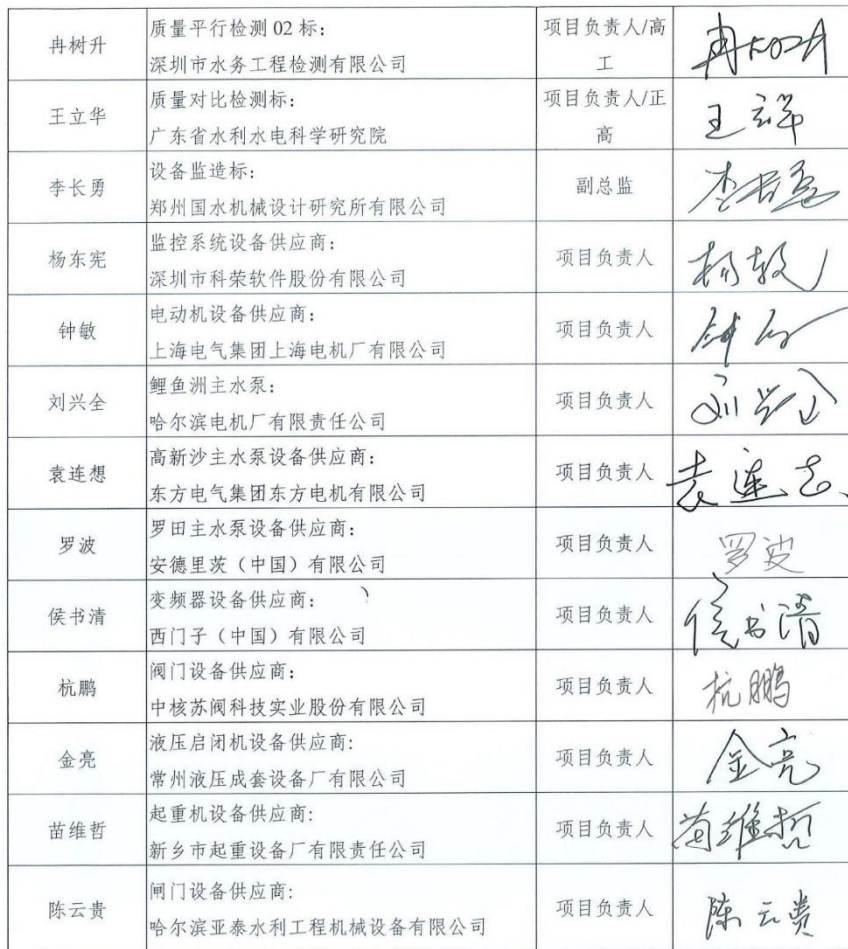 冉树升
质量平行检测 02 标：
深圳市水务工程检测有限公司
项目负责人/高
工
王立华
质量对比检测标：
广东省水利水电科学研究院
项目负责人/正
高
李长勇
设备监造标：
郑州国水机械设计研究所有限公司
副总监
杨东宪
监控系统设备供应商：
深圳市科荣软件股份有限公司
项目负责人
钟敏
电动机设备供应商：
上海电气集团上海电机厂有限公司
项目负责人
刘兴全
鲤鱼洲主水泵：
哈尔滨电机厂有限责任公司
项目负责人
刘兴全
袁连想
高新沙主水泵设备供应商：
东方电气集团东方电机有限公司
项目负责人
罗波
罗田主水泵设备供应商：
安德里茨（中国）有限公司
项目负责人
罗波
侯书清
变频器设备供应商：
西门子（中国）有限公司
项目负责人
侯书清
杭鹏
阀门设备供应商：
中核苏阀科技实业股份有限公司
项目负责人
杭鹏
金亮
液压启闭机设备供应商:
常州液压成套设备厂有限公司
项目负责人
金亮
苗维哲
起重机设备供应商:
新乡市起重设备厂有限责任公司
项目负责人
苗维哲
陈云贵
闸门设备供应商:
哈尔滨亚泰水利工程机械设备有限公司
项目负责人
陈云贵